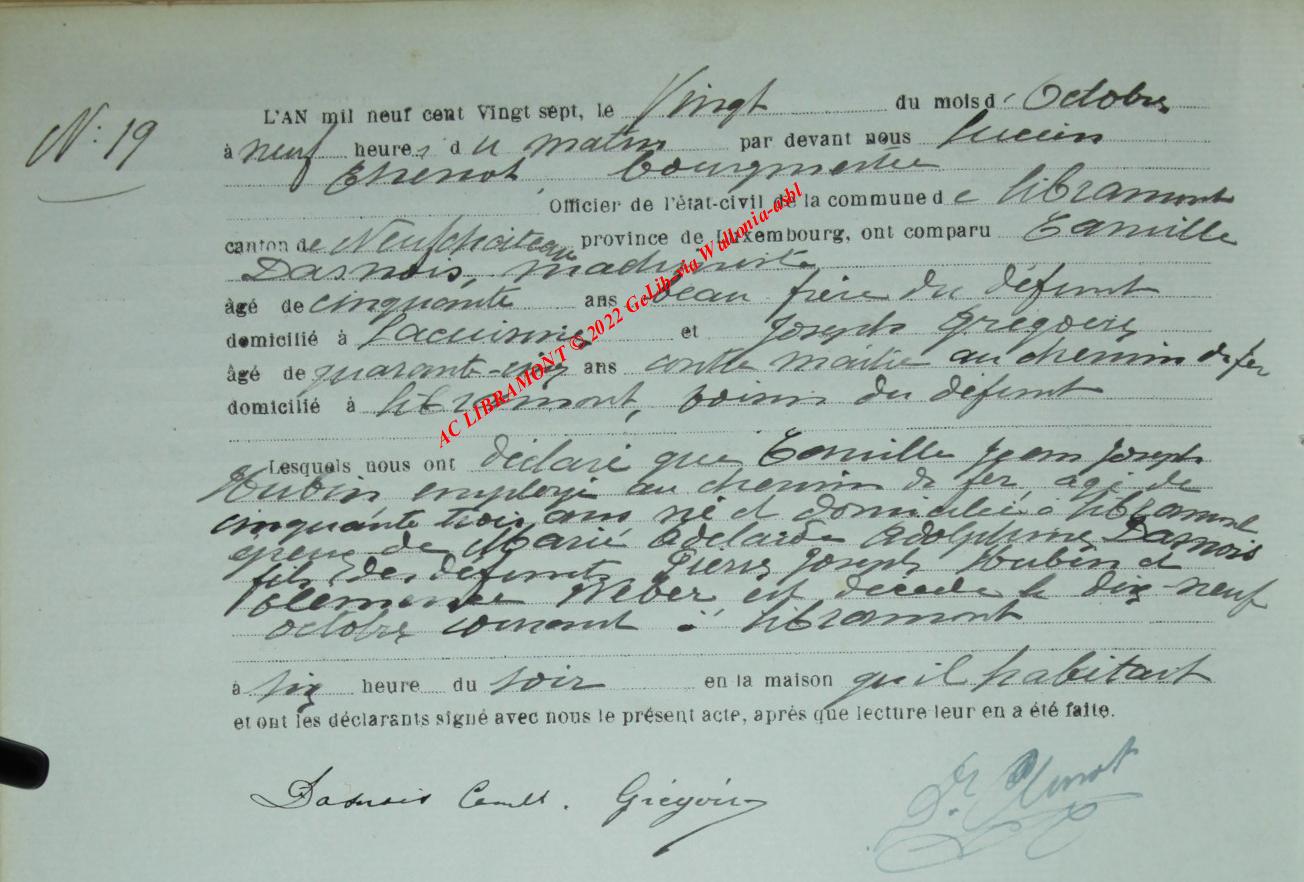 N: 19
L'AN mil neuf cent Vingt sept, le Vingt du mois d'Octobre
à neuf heures du matin par devant nous Lucien
Thénot, bourgmestre
Officier de l'état-civil de la commune de Libramont
canton de Neufchateau province de Luxembourg, ont comparu Camille
Dasnois, machiniste
âgé de cinquante ans beau frère du défunt
domicilié à Lacuisine et Joseph Grégoire
âgé de quarante-cinq ans contre maitre au chemin de fer
domicilié à Libramont, voisin du défunt
Lesquels nous ont déclaré que Camille Jean Joseph
Hubin employé au chemin de fer, agé de
cinquante trois ans né et domicilié à Libramont
époux de Marie Adelaïde Adolphine Dasnois
fils des défunts Pierre Joseph Hubin et
Clémence Weber est décédé le dix-neuf
octobre courant à Libramont
à six heure du soir en la maison qu'il habitait
et ont les déclarants signé avec nous le présent acte, après que lecture leur en a été faite.
Dasnois Camille. Grégoire Dr Thénot
AC LIBRAMONT © 2022 GeLib via Wallonia-asbl